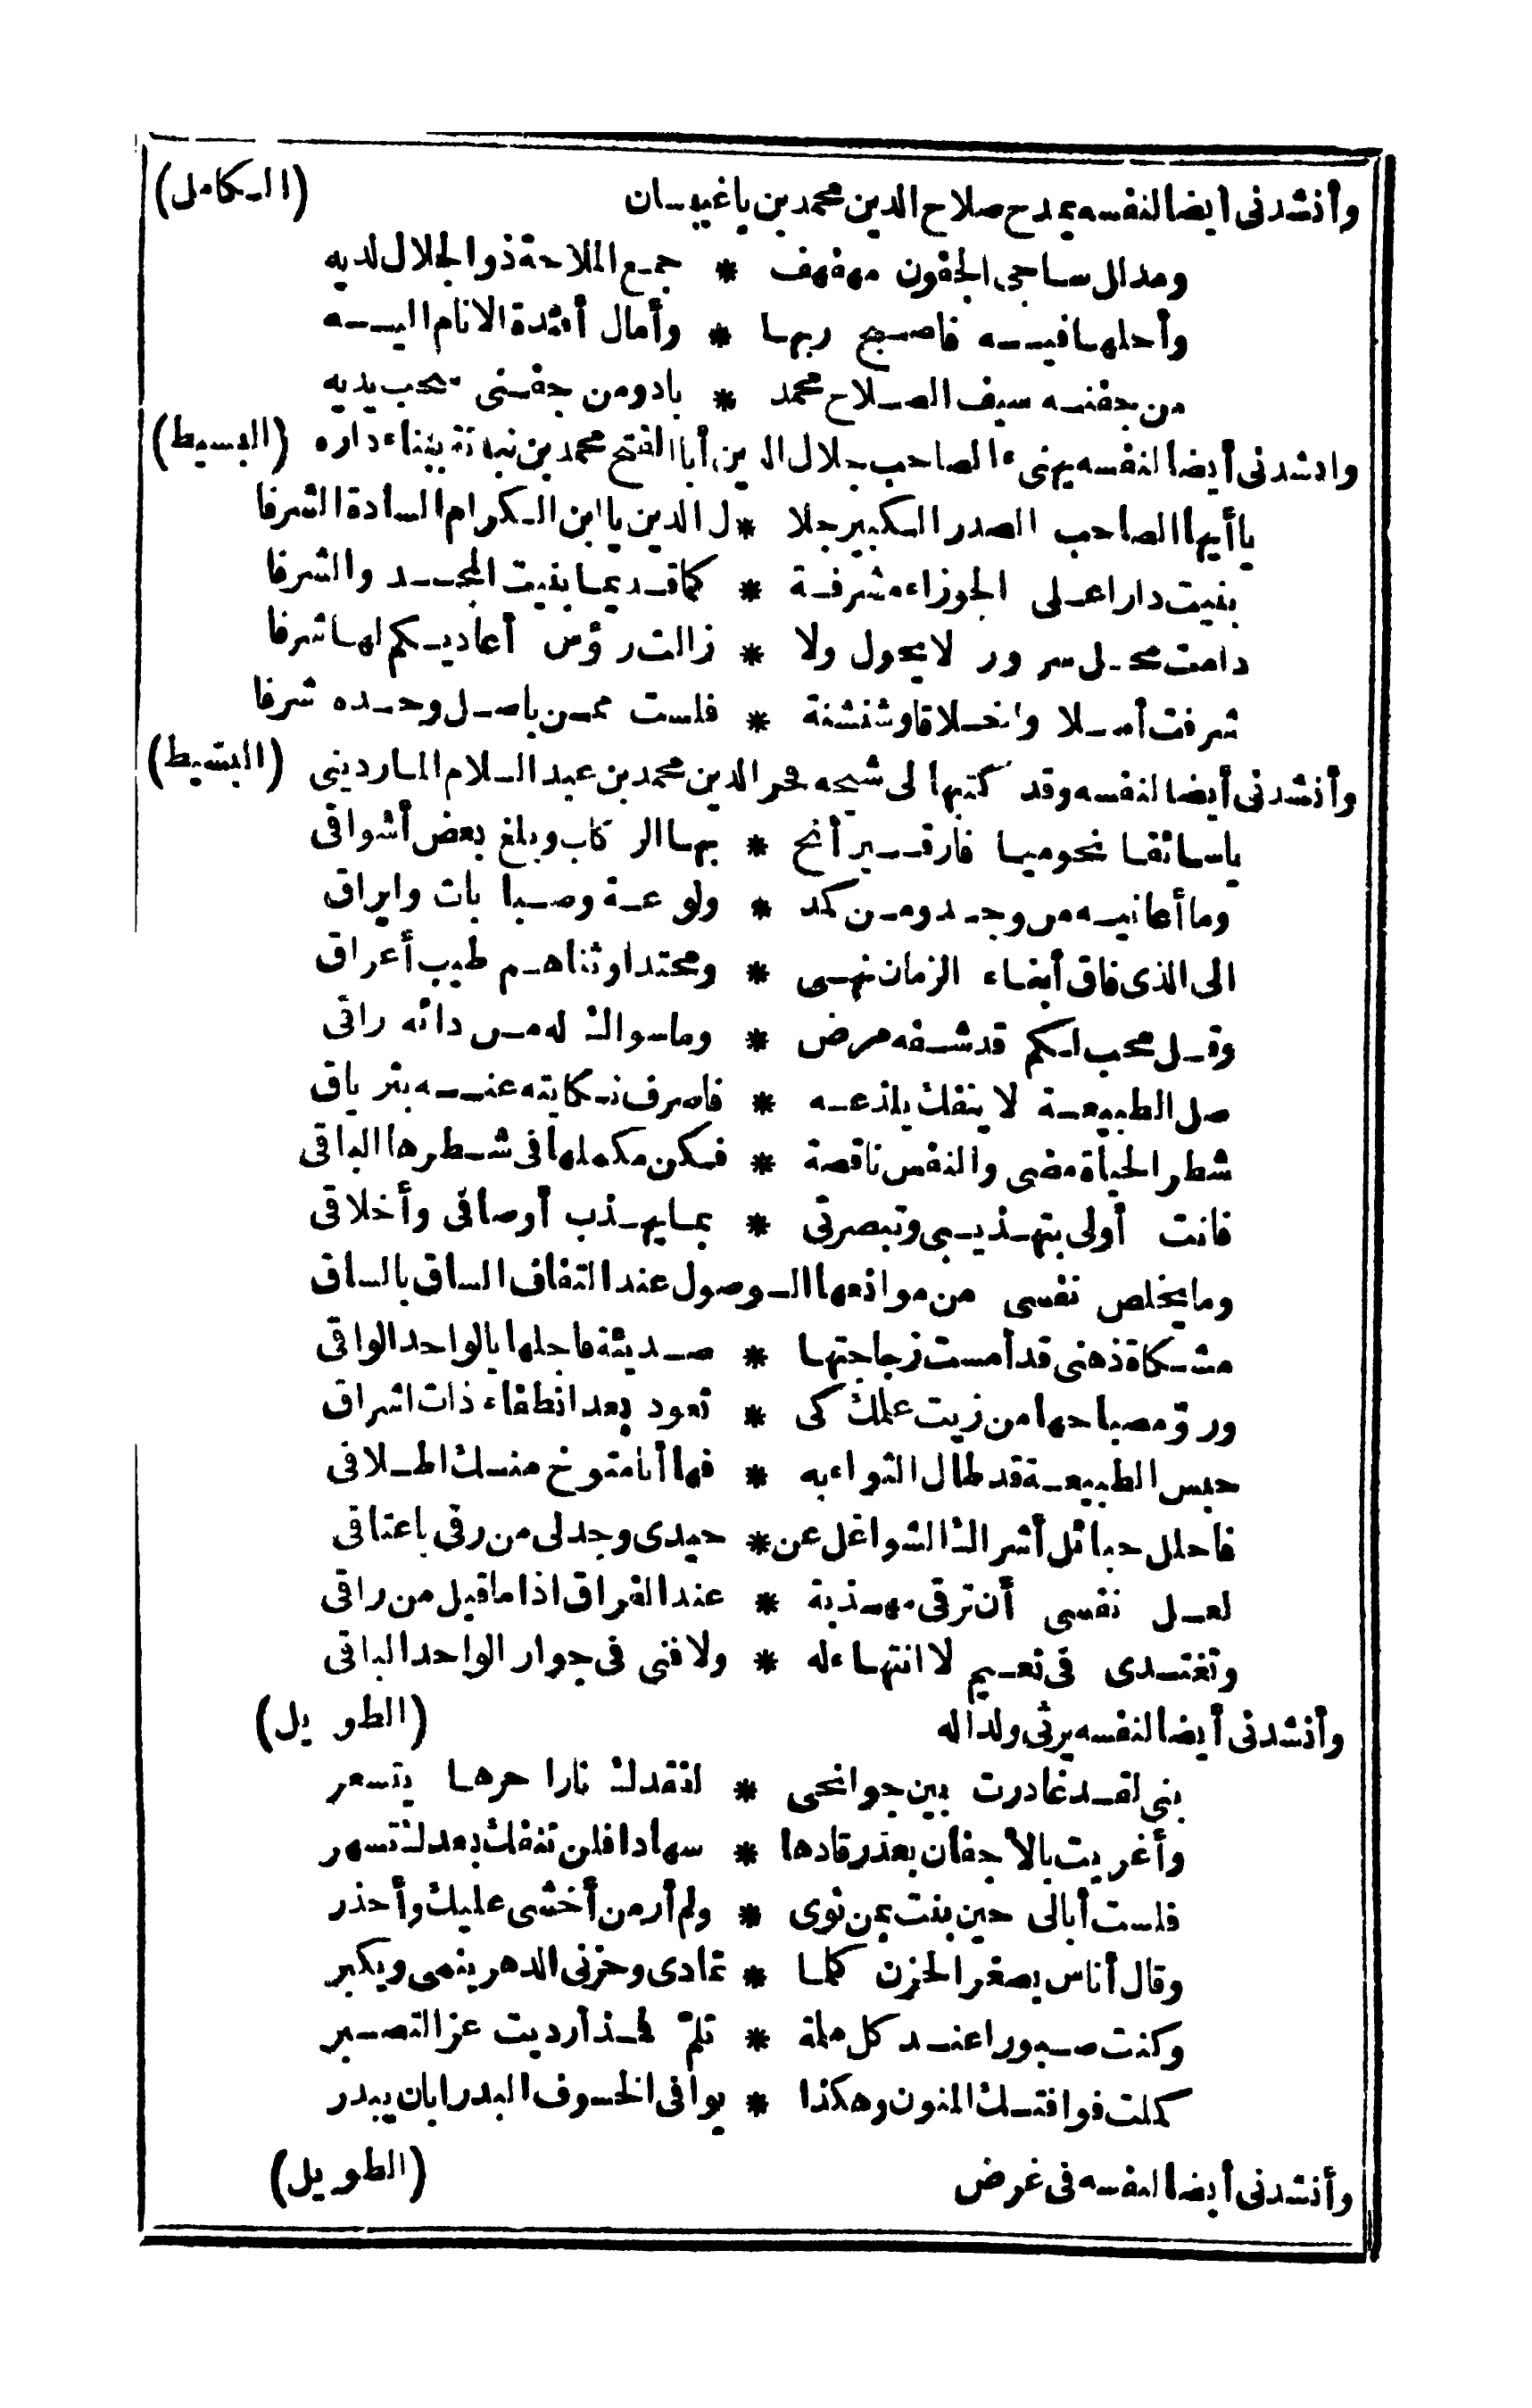 وأنشدنى أيضا لنفسه يمدح صلاح الدين محمد بن باغيسان (الكامل)
ومدلل ساجى الجفون مهفهف * جمع الملاحة ذو الجلال لديه
وأحلها فيه فاصبح ربها * وأمال أفئدة الانام اليه
من جفنه سيف الصلاح محمد * بادو من جفنى سحب يديه
وانشدنى أيضا لنفسه يهنىء الصاحب جلال الدين أبا الفتح محمد بن نباتة ببناء داره (البسيط)
يا أيها الصاحب الصدر الكبير جلا * ل الدين يا ابن الكرام السادة الشرفا
بنيت دارا على الجوزاء مشرفة * كما قديما بنيت المجد والشرفا
دامت محل سرور لا يحول ولا * زالت رؤس أعاديكم لها شرفا
شرفت أصلا وأخلاقا وشنشنة * فلست ممن باصل وحده شرفا
وأنشدنى أيضا لنفسه وقد كتبها لى شيخه فخر الدين محمد بن عبد السلام الماردينى (البسيط)
يا سائقا نحو ميا فارقين أنخ * بها الركاب وبلغ بعض أشواقى
وما أعانيه من وجد ومن كمد * ولوعة وصبابات وايراق
الى الذى فاق أبناء الزمان نهى * ومحتدا وثناهم طيب أعراق
وقل محب لكم قد شفه مرض * وما سواك له من دائه راقى
صل الطبيعة لا ينفك يلذعه * فاصرف نكايته عنه بترياق
شطر الحياة مضى والنفس ناقصة * فكن مكملها فى شطرها الباقى
فانت أولى بتهذيبى وتبصرتى * بما يهذب أوصافى وأخلاقى
وما يخلص نفسى من موانعها الوصول عند التفاف الساق بالساق
مشكاة ذهنى قد أمست زجاجتها * صديئة فاجلها بالواحد الواقى
ورق مصباحها من زيت علمك كى * تعود بعد انطفاء ذات اشراق
حبس الطبيعة قد طال الثواء به * فها أنا متوخ منك اطلاقى
فاحلل حبائل أشراك الشواغل عن * جيدى وجد لى من رقى باعتاقى
لعل نفسى أن ترقى مهذبة * عند الفراق اذا ما قيل من راقى
وتغتدى فى نعيم لا انتهاء له * ولا فنى فى جوار الواحد الباقى
وأنشدنى أيضا لنفسه يرثى ولدا له (الطويل)
بنى لقد غادرت بين جوانحى * لفقدك نارا حرها يتسعر
وأغريت بالأجفان بعد رقادها * سهادا فلن تنفك بعدك تسهر
فلست أبالى حين بنت بمن ثوى * ولم أر من أخشى عليك وأحذر
وقال أناس يصغر الحزن كلما * تمادى وحزنى الدهر ينمى ويكبر
وكنت صبورا عند كل ملمة * تلم فمذ أرديت عز التصبر
كملت فوافتك المنون وهكذا * يوافى الخسوف البدر ابان يبدر
وأنشدنى أيضا لنفسه فى غرض (الطويل)